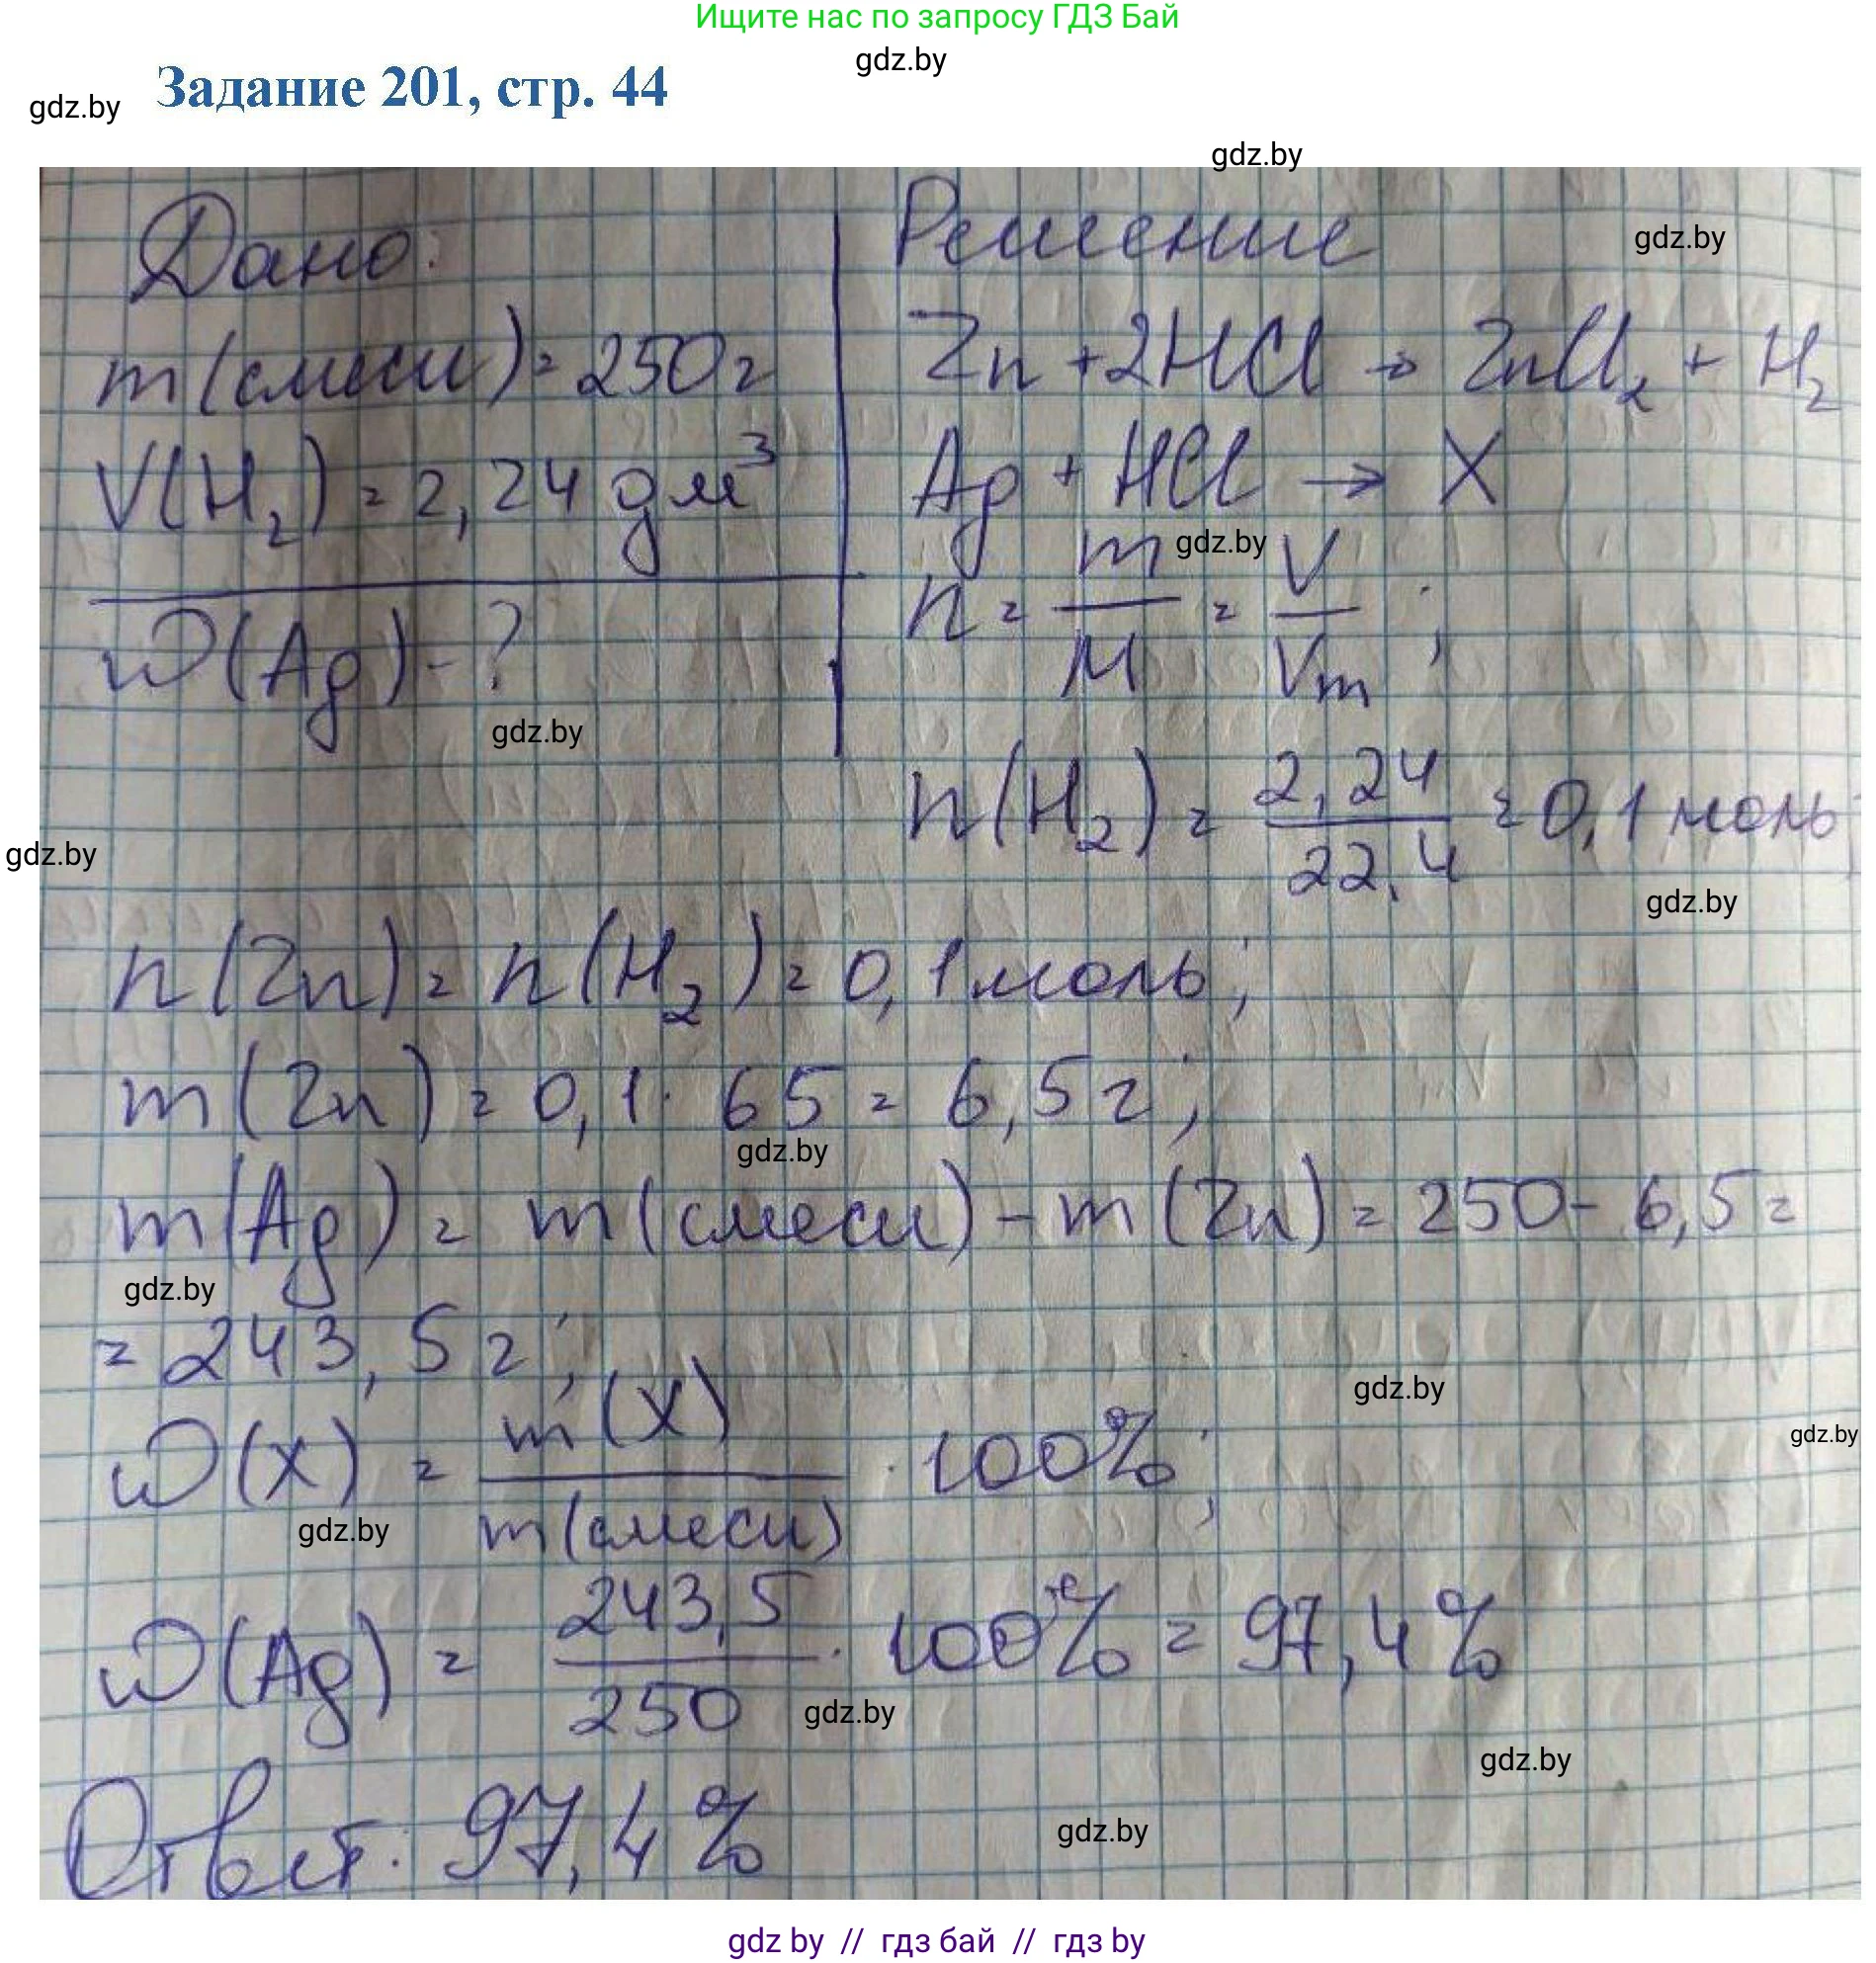 Ищите нас по запросу ГДЗ Бай
gdz.by
Задание 201, стр. 44
gdz.by
gdz.by
Дано:
m(смеси) = 250 г
V(H₂) = 2,24 дм³
ω(Ag) - ?
gdz.by
Решение
gdz.by
Zn + 2HCl → ZnCl₂ + H₂
Ag + HCl → X
gdz.by
n = m/M = V/Vm ;
n(H₂) = 2,24/22,4 = 0,1 моль
gdz.by
gdz.by
n(Zn) = n(H₂) = 0,1 моль;
m(Zn) = 0,1 · 65 = 6,5 г;
gdz.by
m(Ag) = m(смеси) - m(Zn) = 250 - 6,5 =
gdz.by
= 243,5 г;
gdz.by
gdz.by
ω(X) = m(X)/m(смеси) · 100%;
gdz.by
ω(Ag) = 243,5/250 · 100% = 97,4%
gdz.by
gdz.by
Ответ: 97,4%
gdz.by
gdz by // гдз бай // гдз by